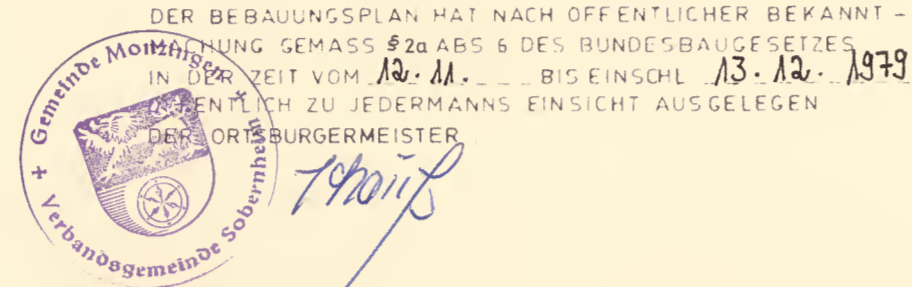 DER BEBAUUNGSPLAN HAT NACH OFFENTLICHER BEKANNT-
MACHUNG GEMASS § 2a ABS 6 DES BUNDESBAUGESETZES
IN DER ZEIT VOM 12.11. BIS EINSCHL 13.12. 1979
OFFENTLICH ZU JEDERMANNS EINSICHT AUSGELEGEN
DER ORTSBURGERMEISTER
Gemeinde Monzingen
Verbandsgemeinde Sobernheim